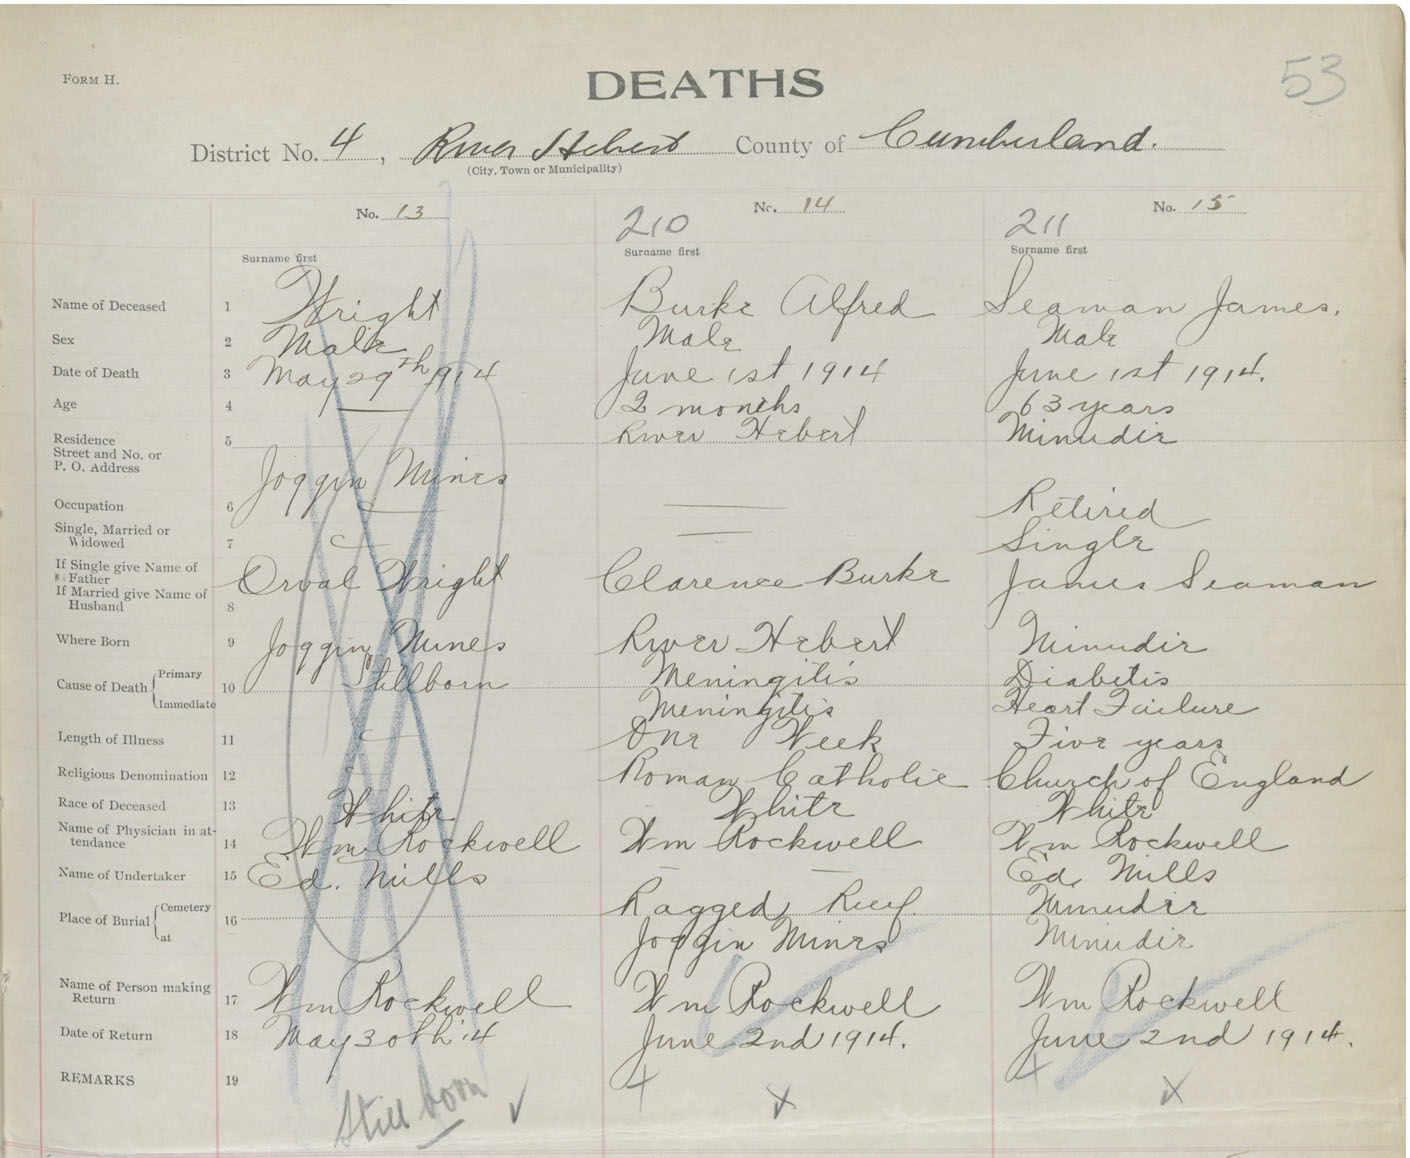 FORM H.
DEATHS
53
District No. 4, River Hebert County of Cumberland.
(City, Town or Municipality)
No. 13
210 No. 14
211 No. 15
Surname first Surname first Surname first
Name of Deceased 1 Wright Burke Alfred Seaman James.
Sex 2 Male Male Male
Date of Death 3 May 29th 1914 June 1st 1914 June 1st 1914.
Age 4 — 2 months 63 years
Residence Street and No. or P. O. Address 5 Joggin Mines River Hebert Minudie
Occupation 6 — — Retired
Single, Married or Widowed 7 — — Single
If Single give Name of Father If Married give Name of Husband 8 Orval Wright Clarence Burke James Seaman
Where Born 9 Joggin Mines River Hebert Minudie
Cause of Death Primary 10 Stillborn Meningitis Diabetis
Immediate Meningitis Heart Failure
Length of Illness 11 — One Week Five years
Religious Denomination 12 — Roman Catholic Church of England
Race of Deceased 13 White White White
Name of Physician in attendance 14 Wm Rockwell Wm Rockwell Wm Rockwell
Name of Undertaker 15 Ed. Mills — — Ed. Mills
Place of Burial Cemetery 16 Ragged Reef Minudie
at Joggin Mines Minudie
Name of Person making Return 17 Wm Rockwell Wm Rockwell Wm Rockwell
Date of Return 18 May 30th '14 June 2nd 1914. June 2nd 1914.
REMARKS 19
Still born